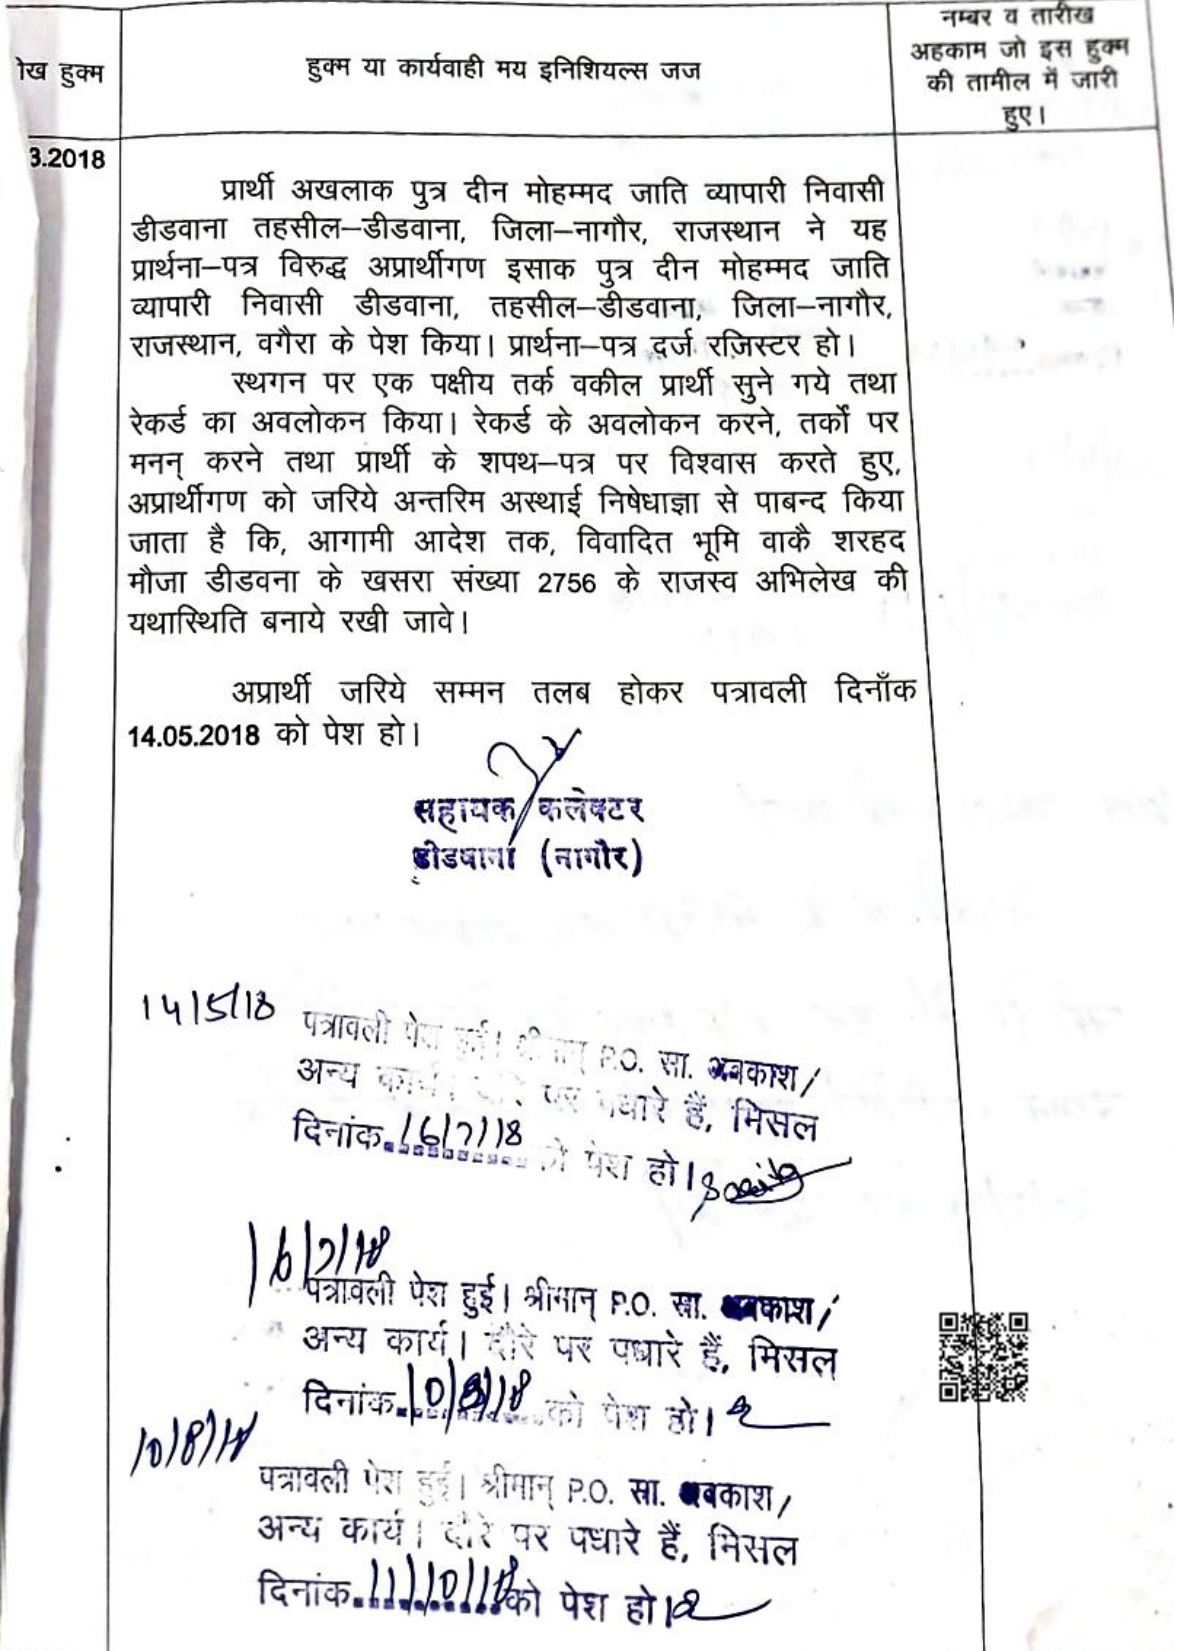 ेख हुक्म
हुक्म या कार्यवाही मय इनिशियल्स जज
नम्बर व तारीख
अहकाम जो इस हुक्म
की तामील में जारी
हुए।
3.2018
प्रार्थी अखलाक पुत्र दीन मोहम्मद जाति व्यापारी निवासी
डीडवाना तहसील–डीडवाना, जिला–नागौर, राजस्थान ने यह
प्रार्थना–पत्र विरुद्ध अप्रार्थीगण इसाक पुत्र दीन मोहम्मद जाति
व्यापारी निवासी डीडवाना, तहसील–डीडवाना, जिला–नागौर,
राजस्थान, वगैरा के पेश किया। प्रार्थना–पत्र दर्ज रजिस्टर हो।
स्थगन पर एक पक्षीय तर्क वकील प्रार्थी सुने गये तथा
रेकर्ड का अवलोकन किया। रेकर्ड के अवलोकन करने, तर्को पर
मनन् करने तथा प्रार्थी के शपथ–पत्र पर विश्वास करते हुए,
अप्रार्थीगण को जरिये अन्तरिम अस्थाई निषेधाज्ञा से पाबन्द किया
जाता है कि, आगामी आदेश तक, विवादित भूमि वाकै शरहद
मौजा डीडवना के खसरा संख्या 2756 के राजस्व अभिलेख की
यथास्थिति बनाये रखी जावे।
अप्रार्थी जरिये सम्मन तलब होकर पत्रावली दिनाँक
14.05.2018 को पेश हो।
सहायक कलेक्टर
डीडवाना (नागौर)
14/5/18
पत्रावली पेश हुई। श्रीमान् P.O. सा. अवकाश/
अन्य कार्य। दौरे पर पधारे हैं, मिसल
दिनांक 16/7/18 को पेश हो।
16/7/18
पत्रावली पेश हुई। श्रीमान् P.O. सा. अवकाश/
अन्य कार्य। दौरे पर पधारे हैं, मिसल
दिनांक 10/8/18 को पेश हो।
10/8/18
पत्रावली पेश हुई। श्रीमान् P.O. सा. अवकाश/
अन्य कार्य। दौरे पर पधारे हैं, मिसल
दिनांक 11/10/18 को पेश हो।